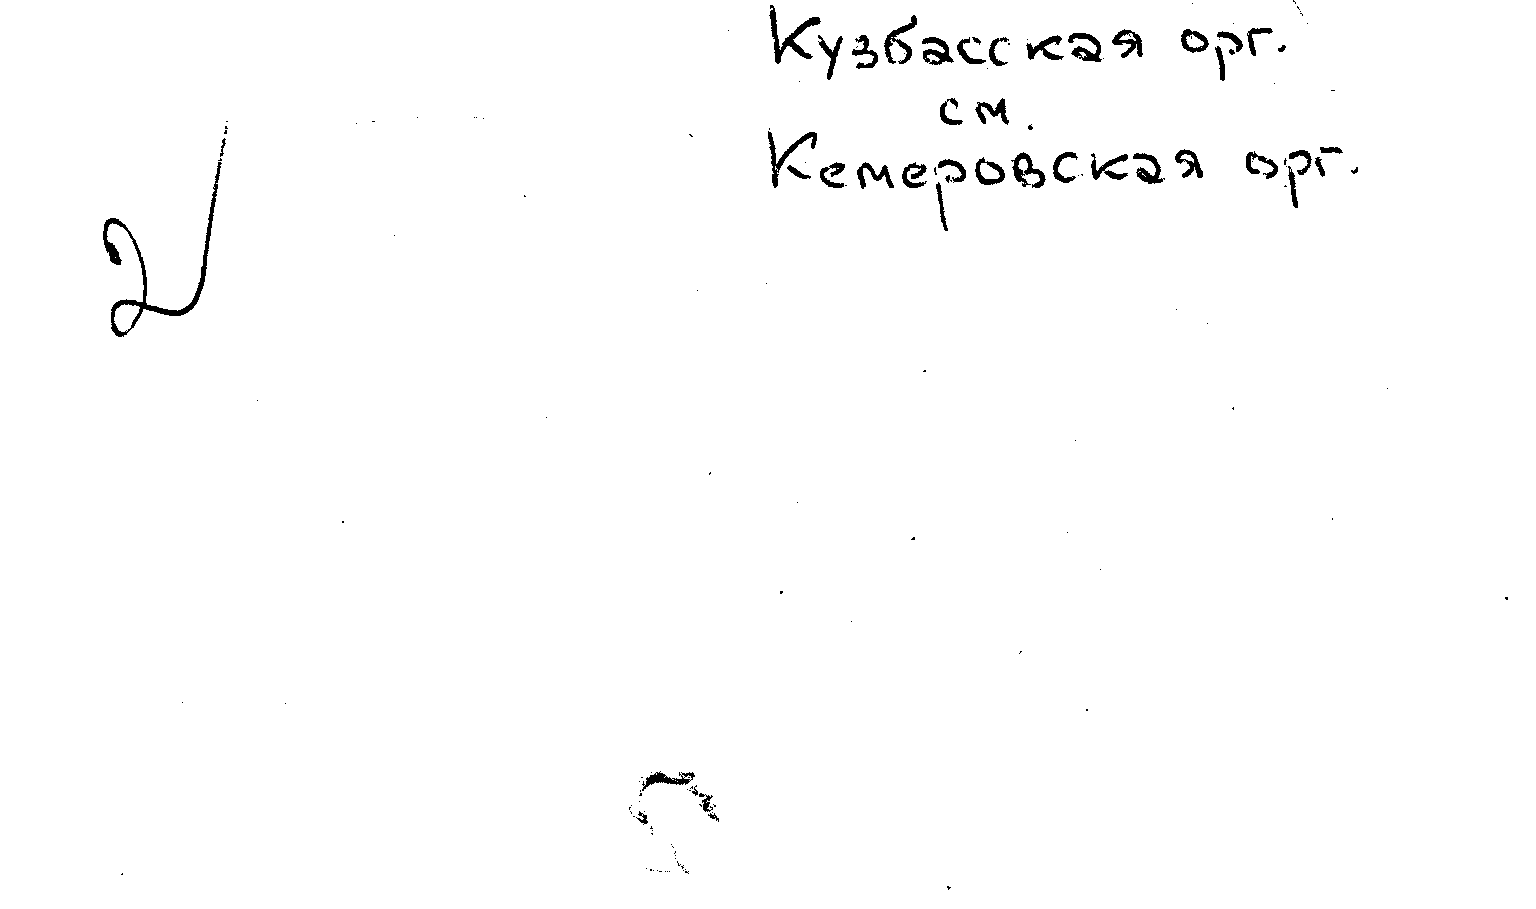 Кузбасская орг.
см.
Кемеровская орг.